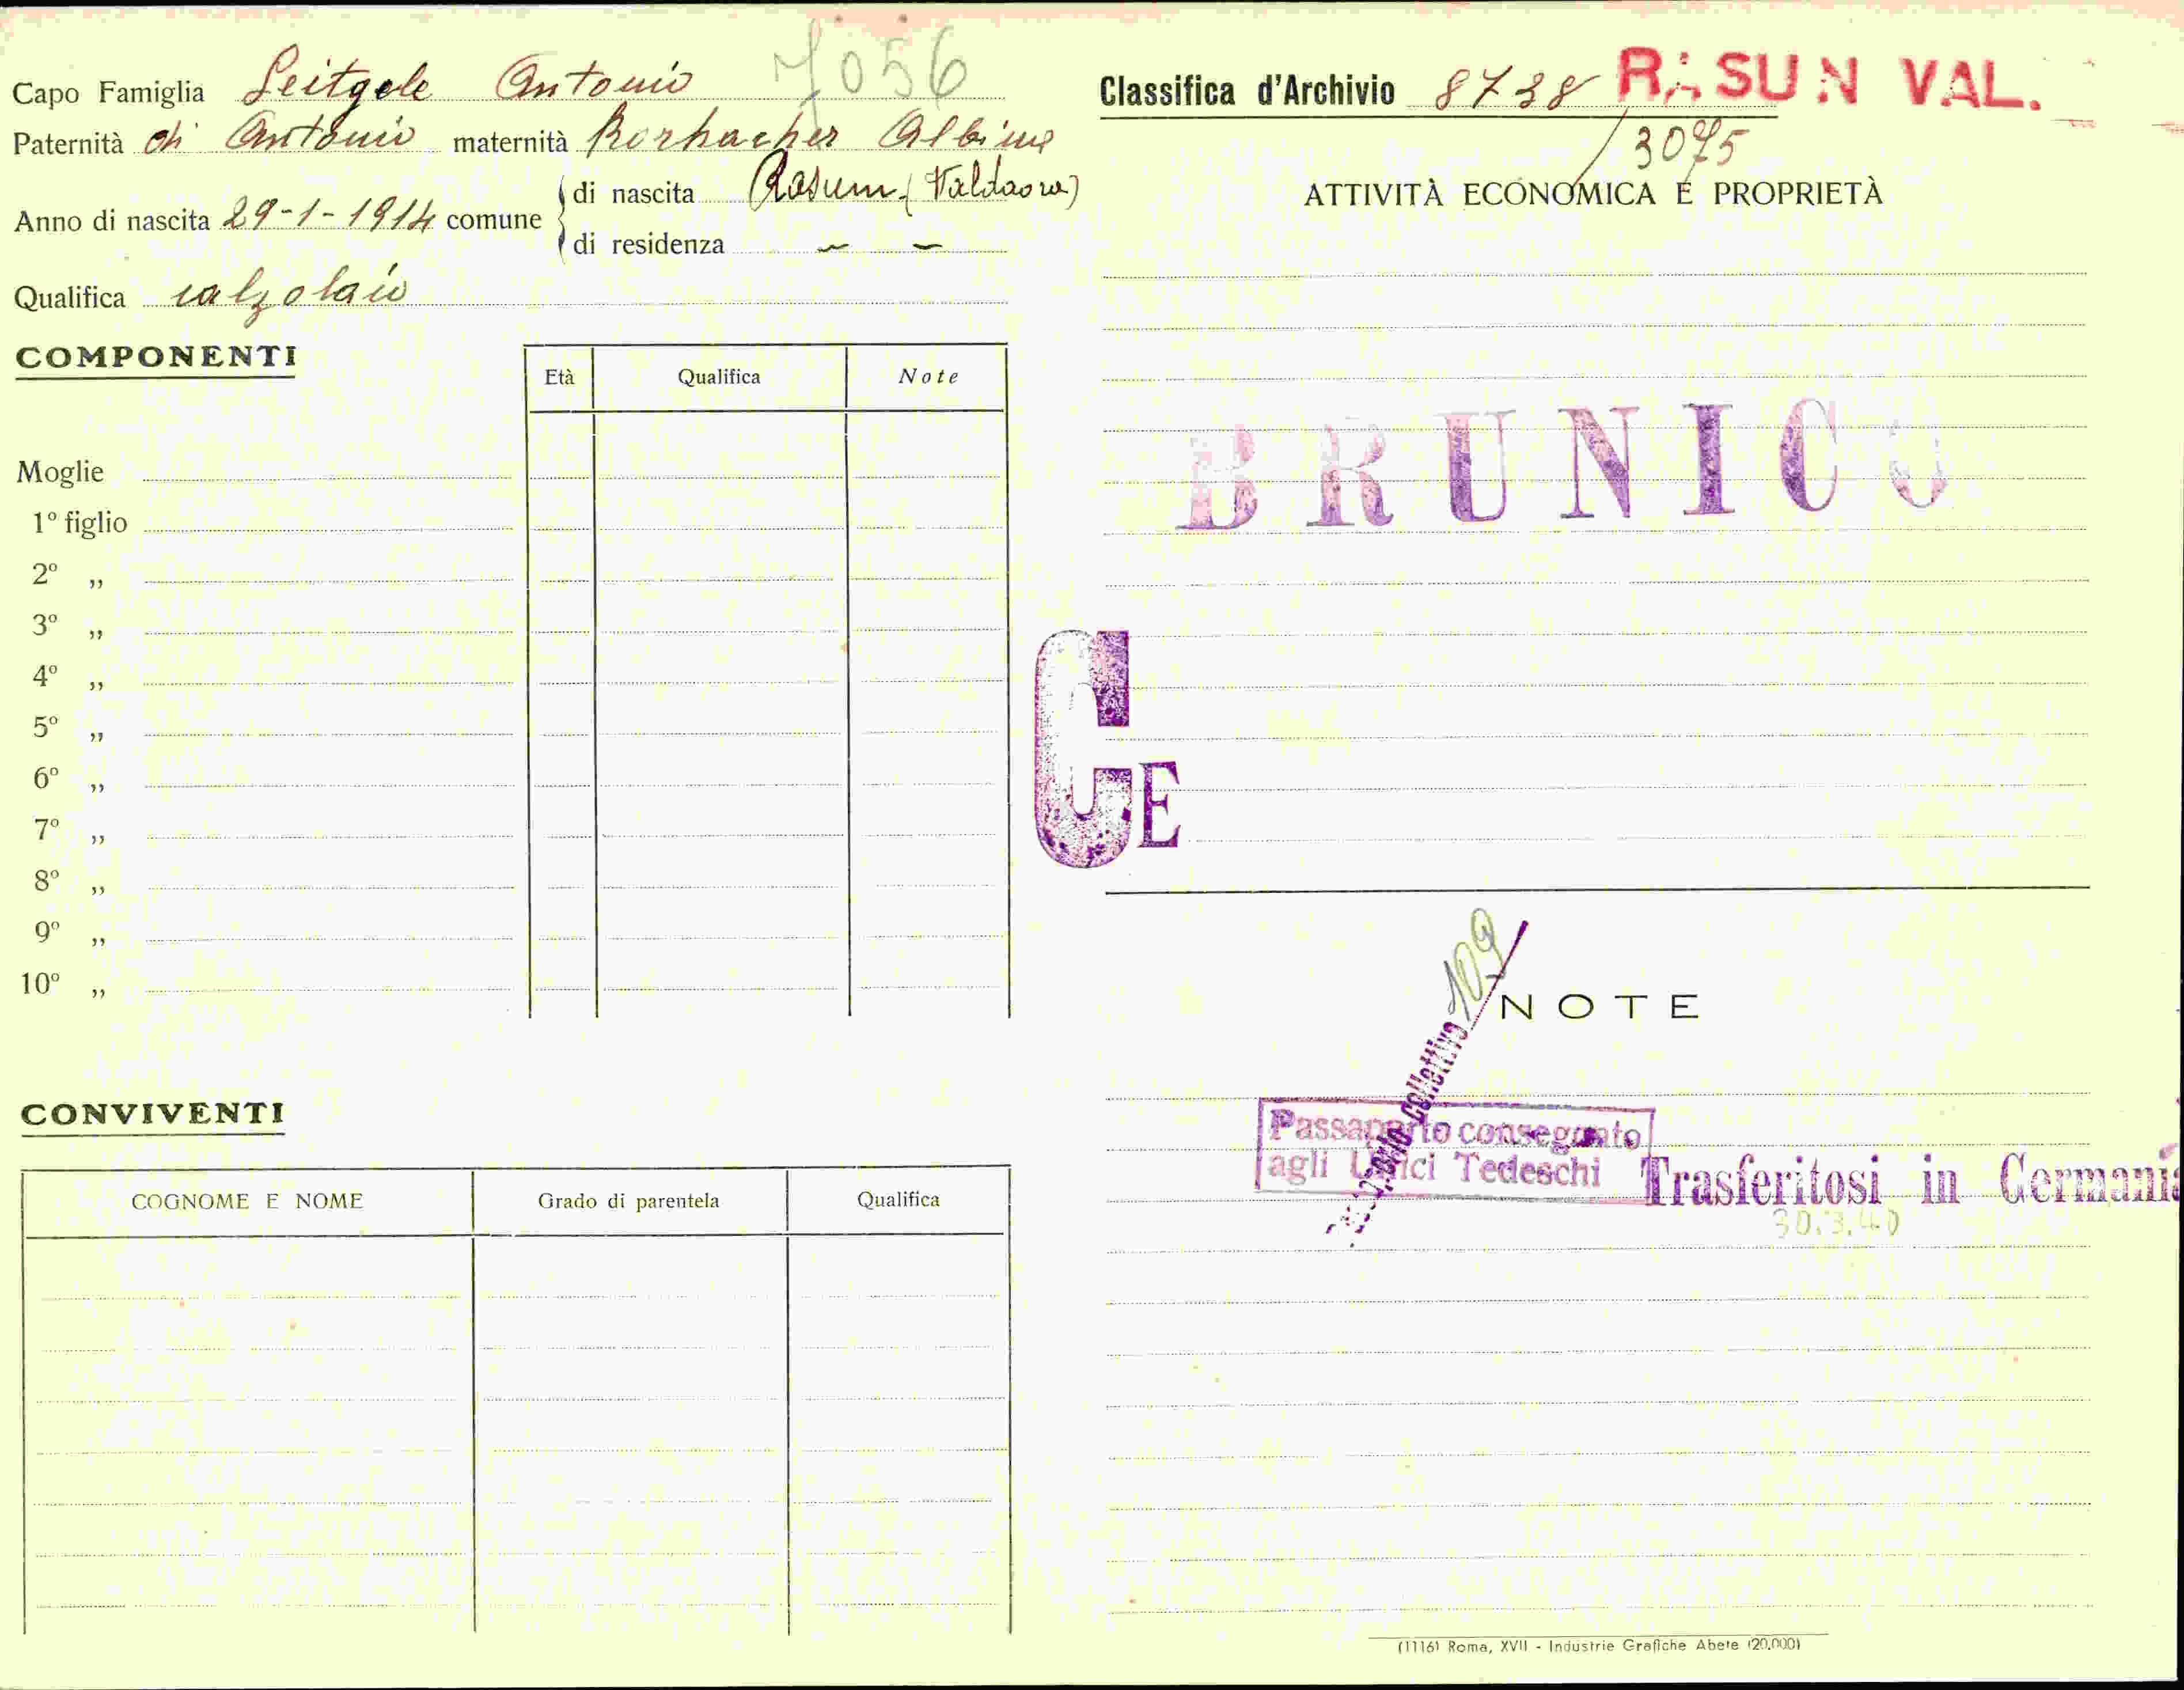 Capo Famiglia Leitgele Antonio 7056
Paternità di Antonio maternità Rorhacher Albina
Anno di nascita 29-1-1914 comune di nascita Rasun (Valdaora)
di residenza — —
Qualifica calzolaio
COMPONENTI
Età Qualifica Note
Moglie
1º figlio
2º „
3º „
4º „
5º „
6º „
7º „
8º „
9º „
10º „
CONVIVENTI
COGNOME E NOME Grado di parentela Qualifica
Classifica d'Archivio 8738 RASUN VAL.
/3075
ATTIVITÀ ECONOMICA E PROPRIETÀ
BRUNICO
CE
109
NOTE
collettivo
Passaporto consegnato
agli Uffici Tedeschi
Trasferitosi in Germania
30.3.40
(1116) Roma, XVII - Industrie Grafiche Abete (20.000)